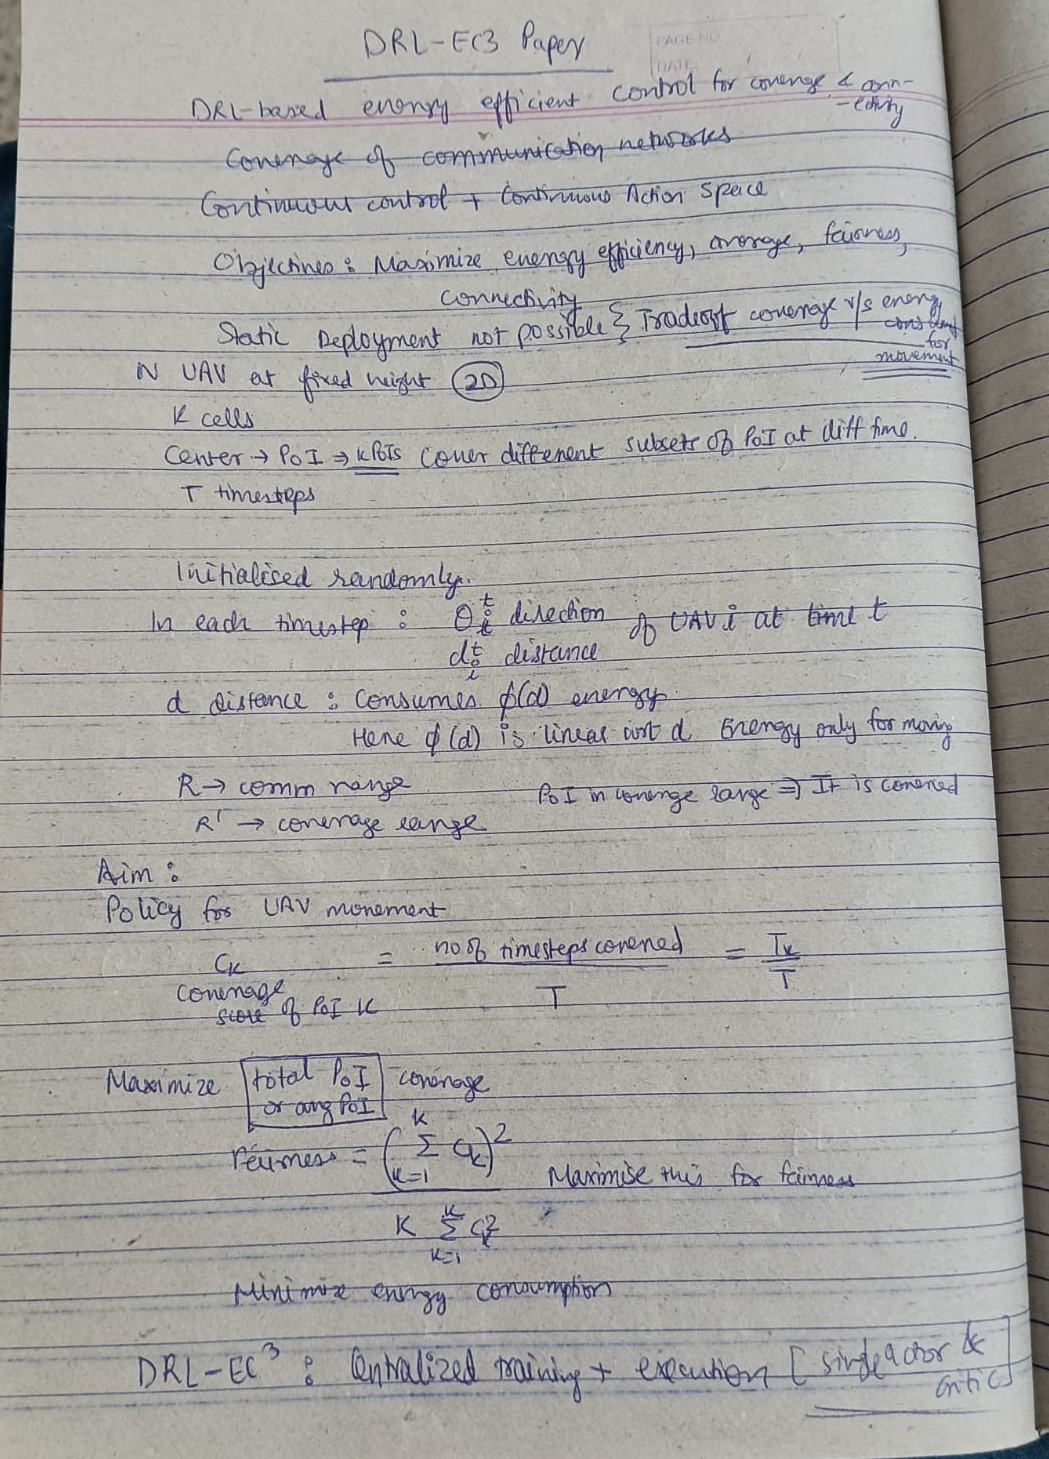 DRL-EC3 Paper
PAGE NO
DATE:
DRL-based energy efficient control for coverage & conn-
-ectivity
Coverage of communication networks
Continuous control + Continuous Action Space
Objectives : Maximize energy efficiency, coverage, fairness,
connectivity
Static Deployment not possible } Tradeoff coverage v/s energy
for
movement
N UAV at fixed height (2D)
K cells
Center → PoI ⇒ K PoIs cover different subsets of PoI at diff time.
T timesteps
Initialised randomly.
In each timestep : θᵢᵗ direction of UAV i at time t
dᵢᵗ distance
d distance : consumes φ(d) energy.
Here φ(d) is linear wrt d Energy only for moving
R → comm range
PoI in coverage range ⇒ It is covered
R' → coverage range
Aim :
Policy for UAV movement
Cₖ = no of timesteps covered / T = Tₖ / T
coverage
score of PoI K
Maximize [total PoI or avg PoI] coverage
Fairness = (Σₖ₌₁ᴷ Cₖ)² / K Σₖ₌₁ᴷ Cₖ² Maximise this for fairness
Minimize energy consumption
DRL-EC³ : Centralized training + execution [single actor &
critic]